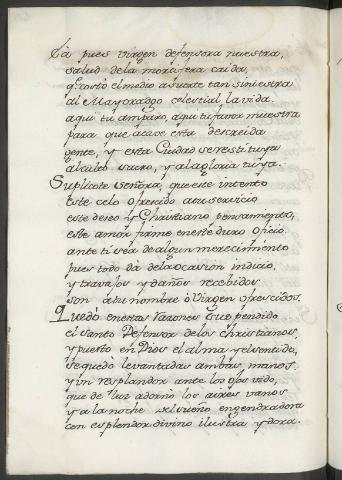 Ea pues virgen defensora nuestra,
salud dela mortifera caida,
q̃ costò el medio a suerte tan siniestra
al Mayorazgo celestial la vida.
aqui tu amparo, aqui tu favor muestra
para que acave esta descreida
gente, y esta Ciudad se restituya
al culto sacro, y ala gloria tuya.
Suplicote señora, que este intento
este celo ofrecido atu servicio
este deseo y Christiano pensamiento,
este amor firme en este duro oficio
ante ti sea de algun merecimiento
pues todo dà dela ocasion indicio,
y travajos y daños recebidos
son a tu nombre ò Virgen ofrecidos.
Quedò en estas razones suspendido
el santo Defensor delos christianos,
y puesto en Dios el alma y el sentido,
se quedo levantadas ambas manos.
y un resplandor ante los ojos vido,
que de luz adornò los aires vanos
y a la noche del sueño engendradora
con esplendor divino ilustra y dora.